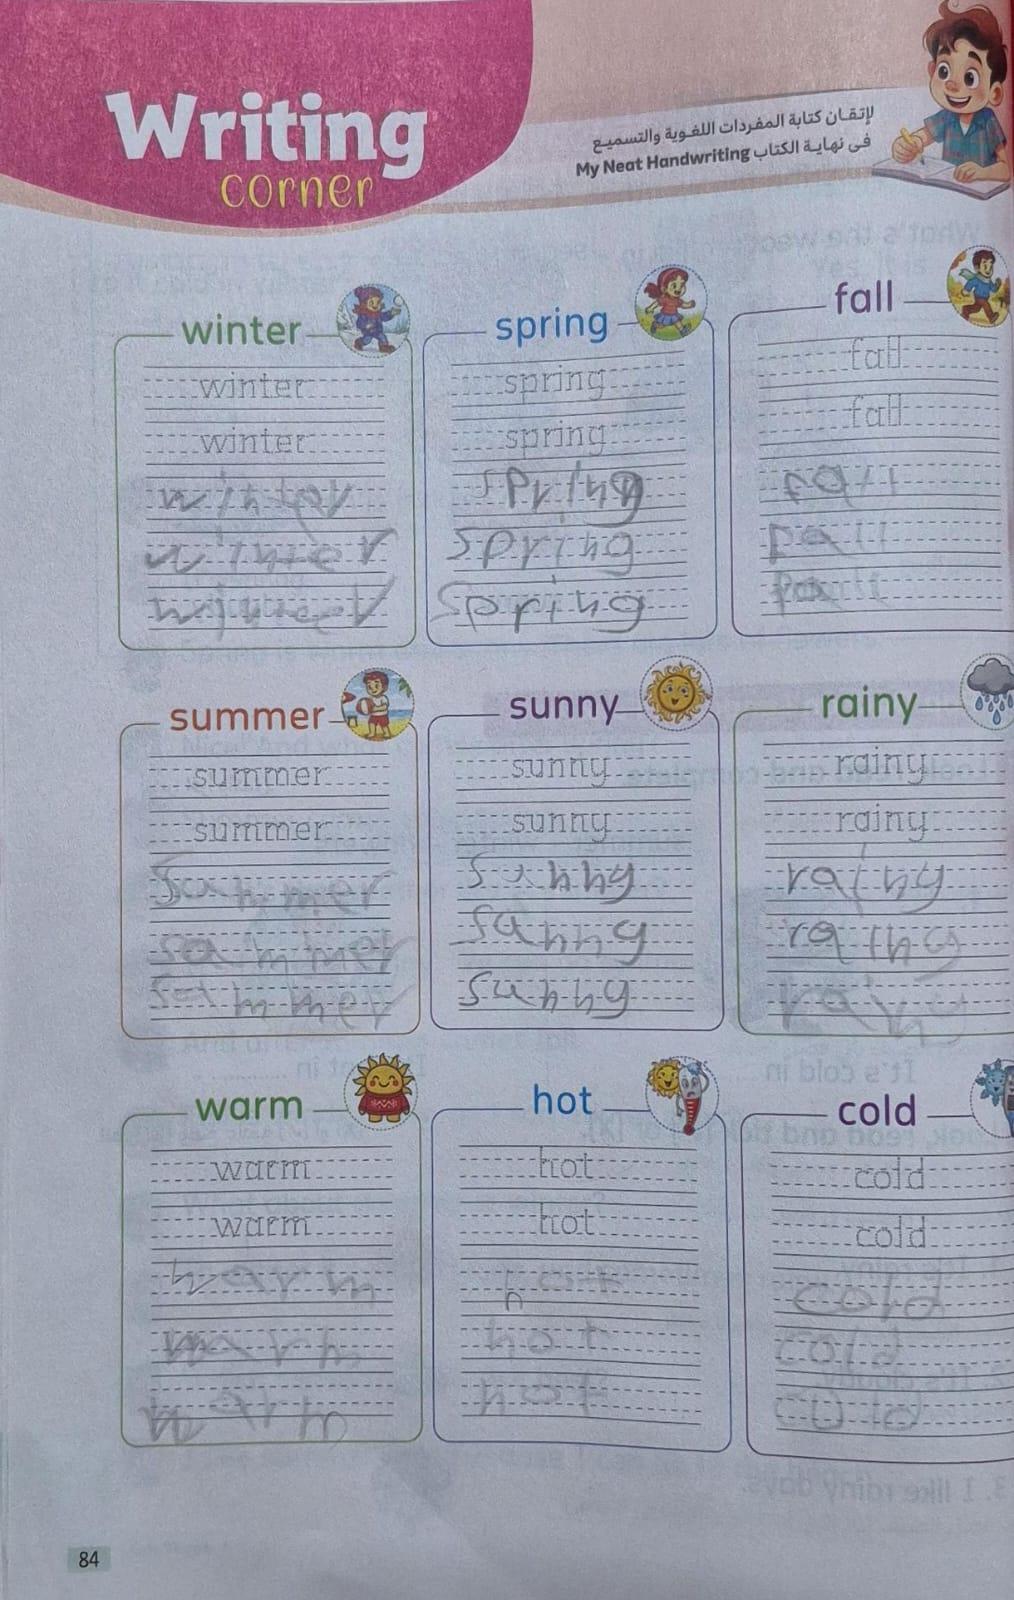 Writing
corner
لإتقان كتابة المفردات اللغوية والتسميع
فى نهاية الكتاب My Neat Handwriting
winter
winter
winter
winter
winter
spring
spring
spring
spring
spring
spring
fall
fall
fall
fall
summer
summer
summer
sunny
sunny
sunny
sunny
sunny
sunny
rainy
rainy
rainy
rainy
rainy
rainy
warm
warm
warm
warm
hot
hot
hot
hot
hot
cold
cold
cold
cold
cold
cold
3. I like rainy days.
84